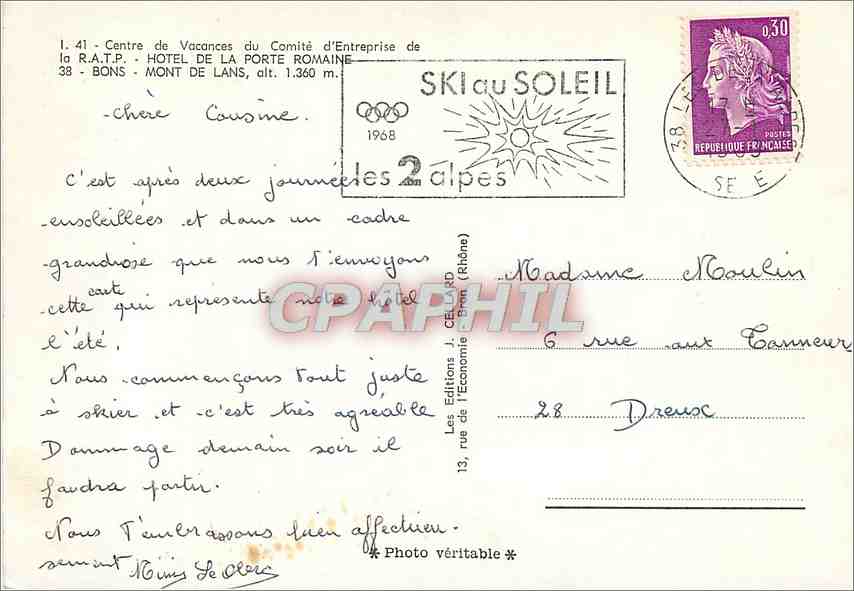 I. 41 - Centre de Vacances du Comité d'Entreprise de
la R.A.T.P. - HOTEL DE LA PORTE ROMAINE
38 - BONS - MONT DE LANS, alt. 1.360 m.
SKI au SOLEIL
1968
les 2 alpes
0,30
POSTES
REPUBLIQUE FRANÇAISE
38 LES DEUX
chère Cousine.
C'est après deux journées
ensoleillées et dans un cadre
grandiose que nous t'envoyons
cette carte qui représente notre hôtel
l'été.
Nous commençons tout juste
à skier et c'est très agréable
Dommage demain soir il
faudra partir.
Nous t'embrassons bien affectueu-
sement
Les Editions J. CELLARD
13, rue de l'Economie - Bron (Rhône)
Madame Moulin
6 rue aux Tanneur
28 Dreux
* Photo véritable *
CPAPHIL